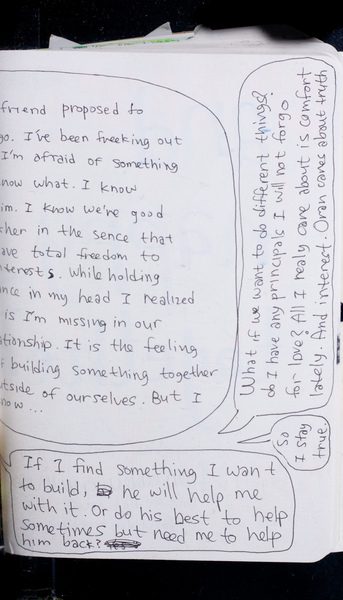 friend proposed to
go. I've been freeking out
I'm afraid of something
now what. I know
im. I know we're good
ther in the sence that
ave total freedom to
nterests. While holding
nce in my head I realized
is I'm missing in our
ationship. It is the feeling
f building something together
tside of ourselves. But I
now ...
What if we want to do different things?
do I have any principals I will not forgo
for love? All I realy care about is comfort
lately. And interest. Oran cares about truth
So
I stay
true
If I find something I want
to build, he will help me
with it. Or do his best to help
sometimes but need me to help
him back?